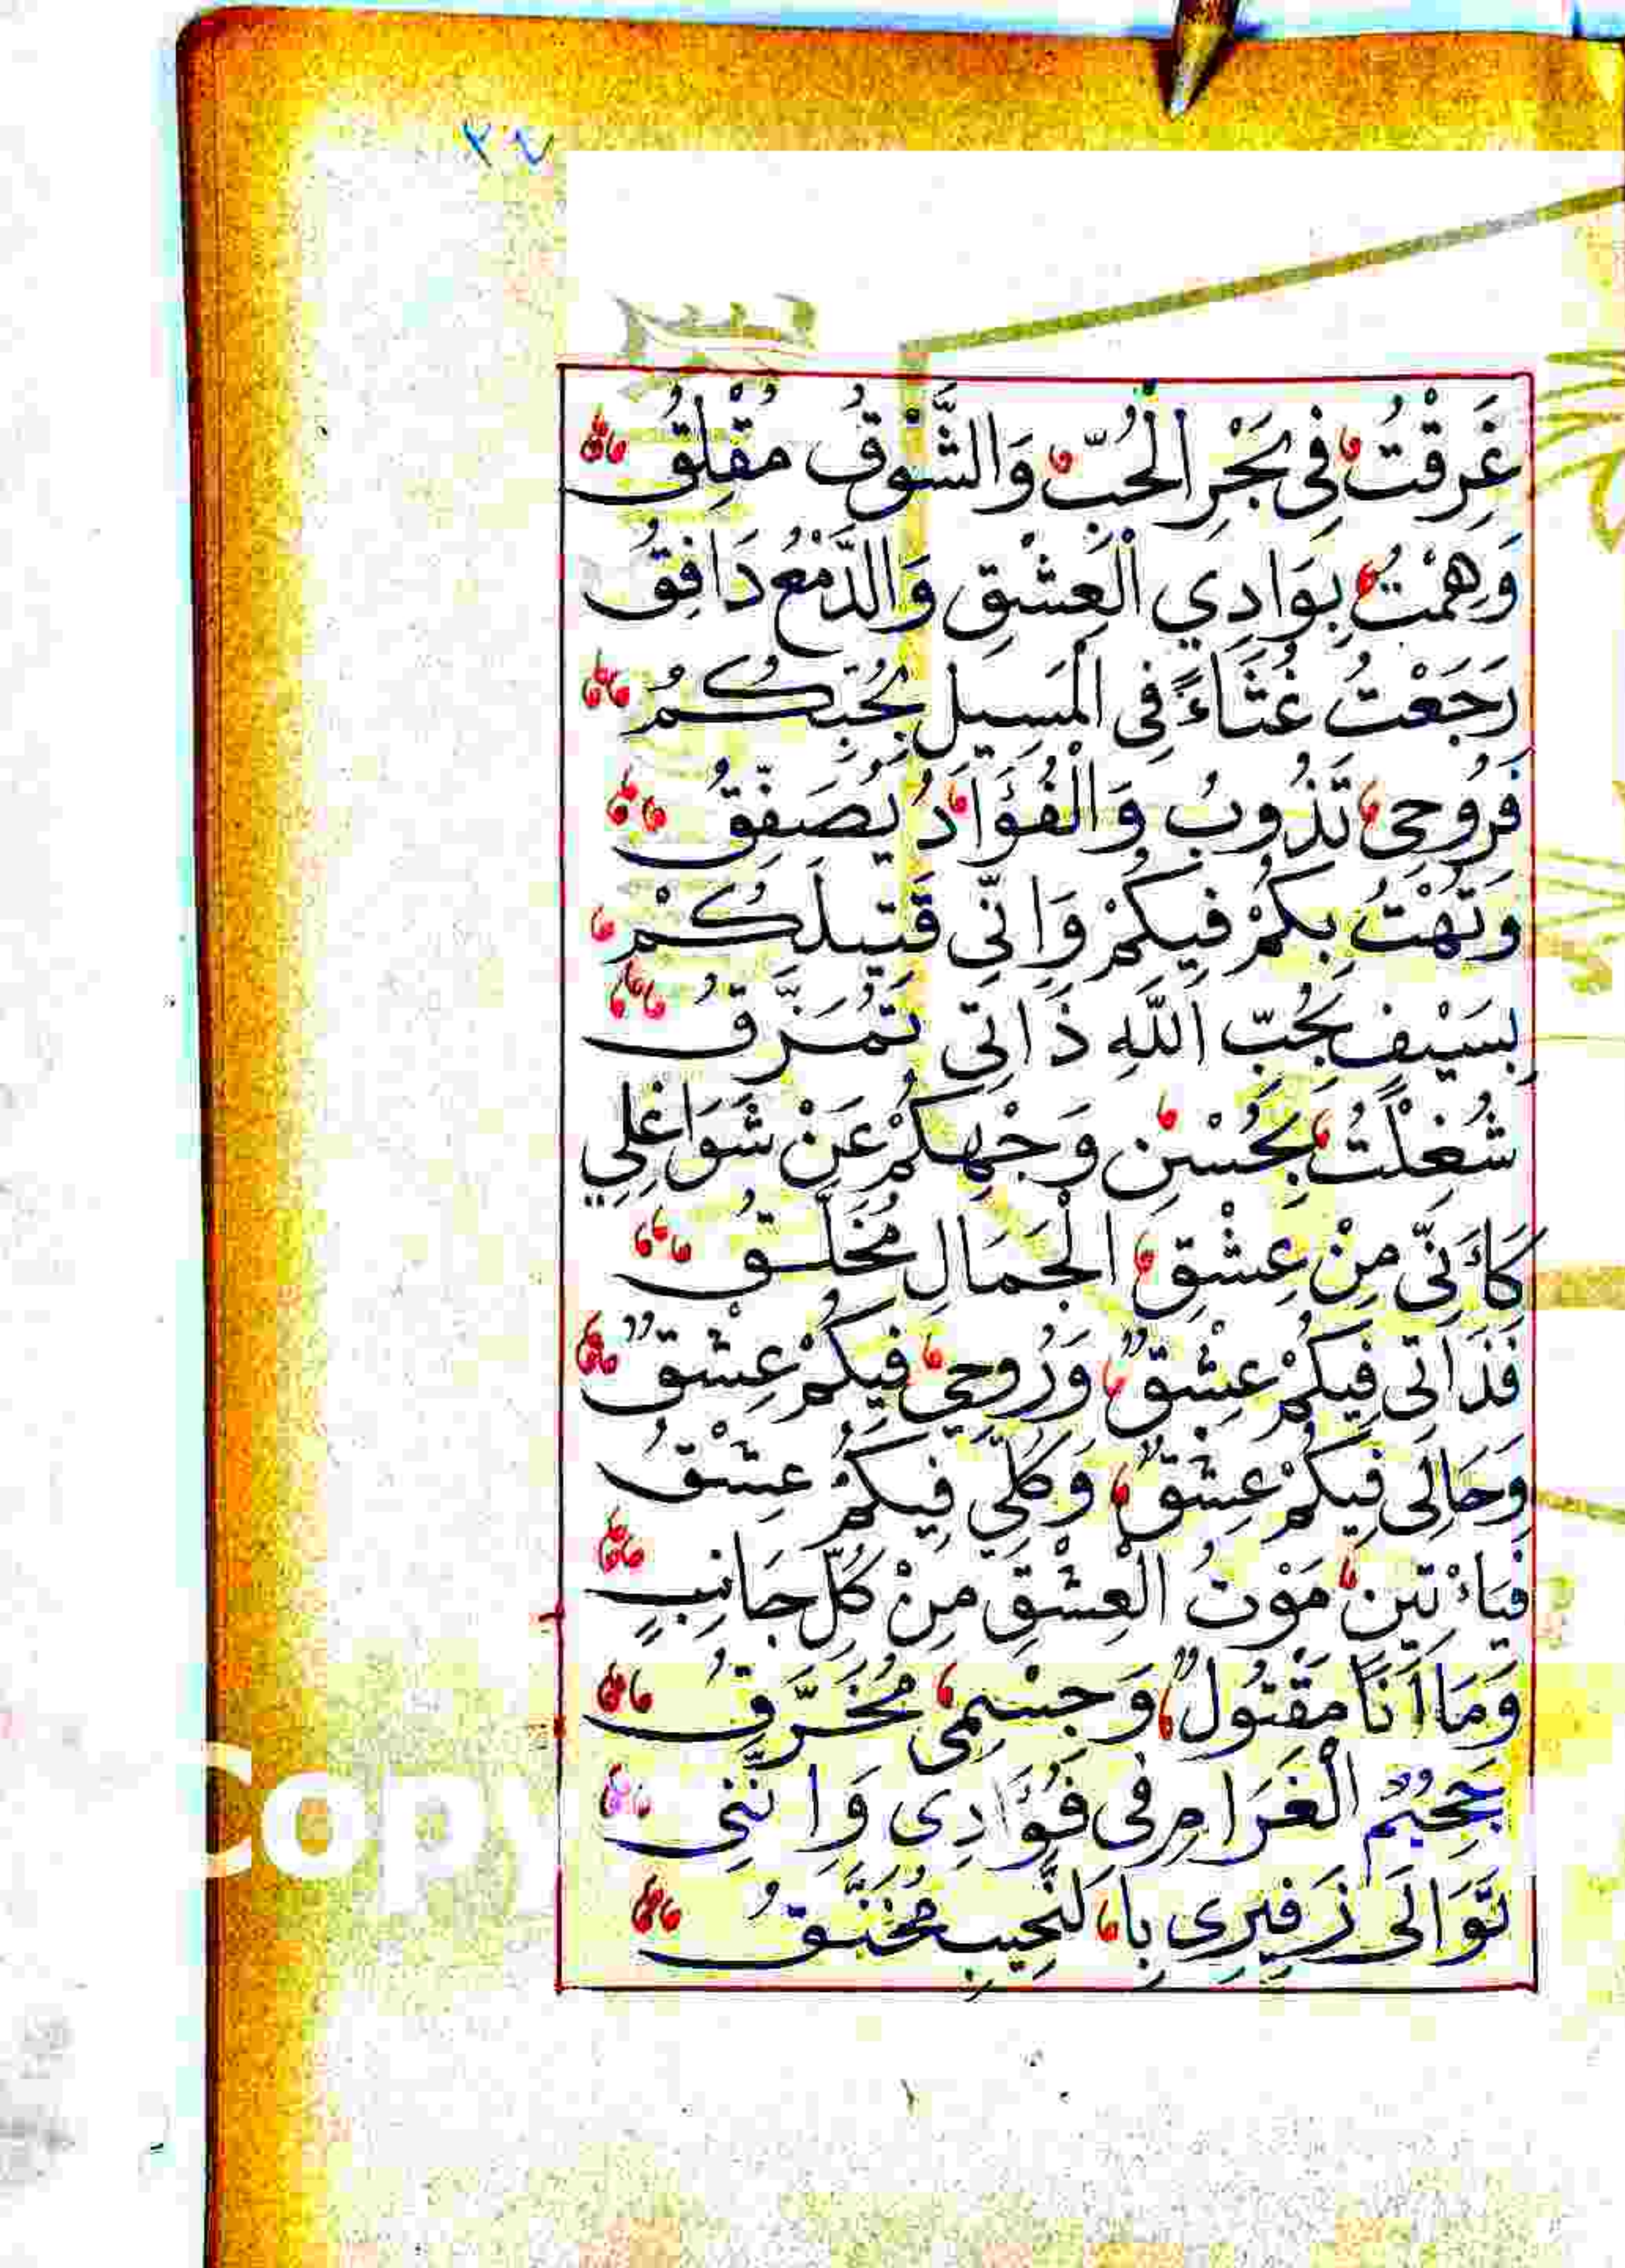 ٢٤
غَرِقْتُ فِى بَحْرِ الْحُبِّ وَالشَّوْقُ مُقْلِقُ
وَهِمْتُ بِوَادِي الْعِشْقِ وَالدَّمْعُ دَافِقُ
رَجَعْتُ غُثَاءً فِى الْمَسِيلِ بِحُبِّكُمْ
فَرُوحِى تَذُوبُ وَالْفُؤَادُ يُصَفِّقُ
وَتُهْتُ بِكُمْ فِيكُمْ وَاِنِّى قَتِيلُكُمْ
بِسَيْفِ بِحُبِّ اللَّهِ ذَاتِى تَمَزَّقُ
شُغِلْتُ بِحُسْنِ وَجْهِكُمْ عَنْ شَوَاغِلِي
كَاَنِّى مِنْ عِشْقِ الْجَمَالِ مُخَلَّقُ
فَذَاتِى فِيكُمْ عِشْقٌ وَرُوحِي فِيكُمْ عِشْقٌ
وَحَالِى فِيكُمْ عِشْقٌ وَكُلِّي فِيكُمْ عِشْقُ
فَيَاءْتِينِ مَوْتُ الْعِشْقِ مِنْ كُلِّ جَانِبٍ
وَمَا اَنَا مَقْتُولٌ وَجِسْمِى مُخَرَّقُ
جَحِيْمُ الْغَرَامِ فِى فُؤَادِى وَاِنَّنِى
تَوَالَى زَفِيرِى بِالنَّحِيبِ مُخَنَّقُ
Copy